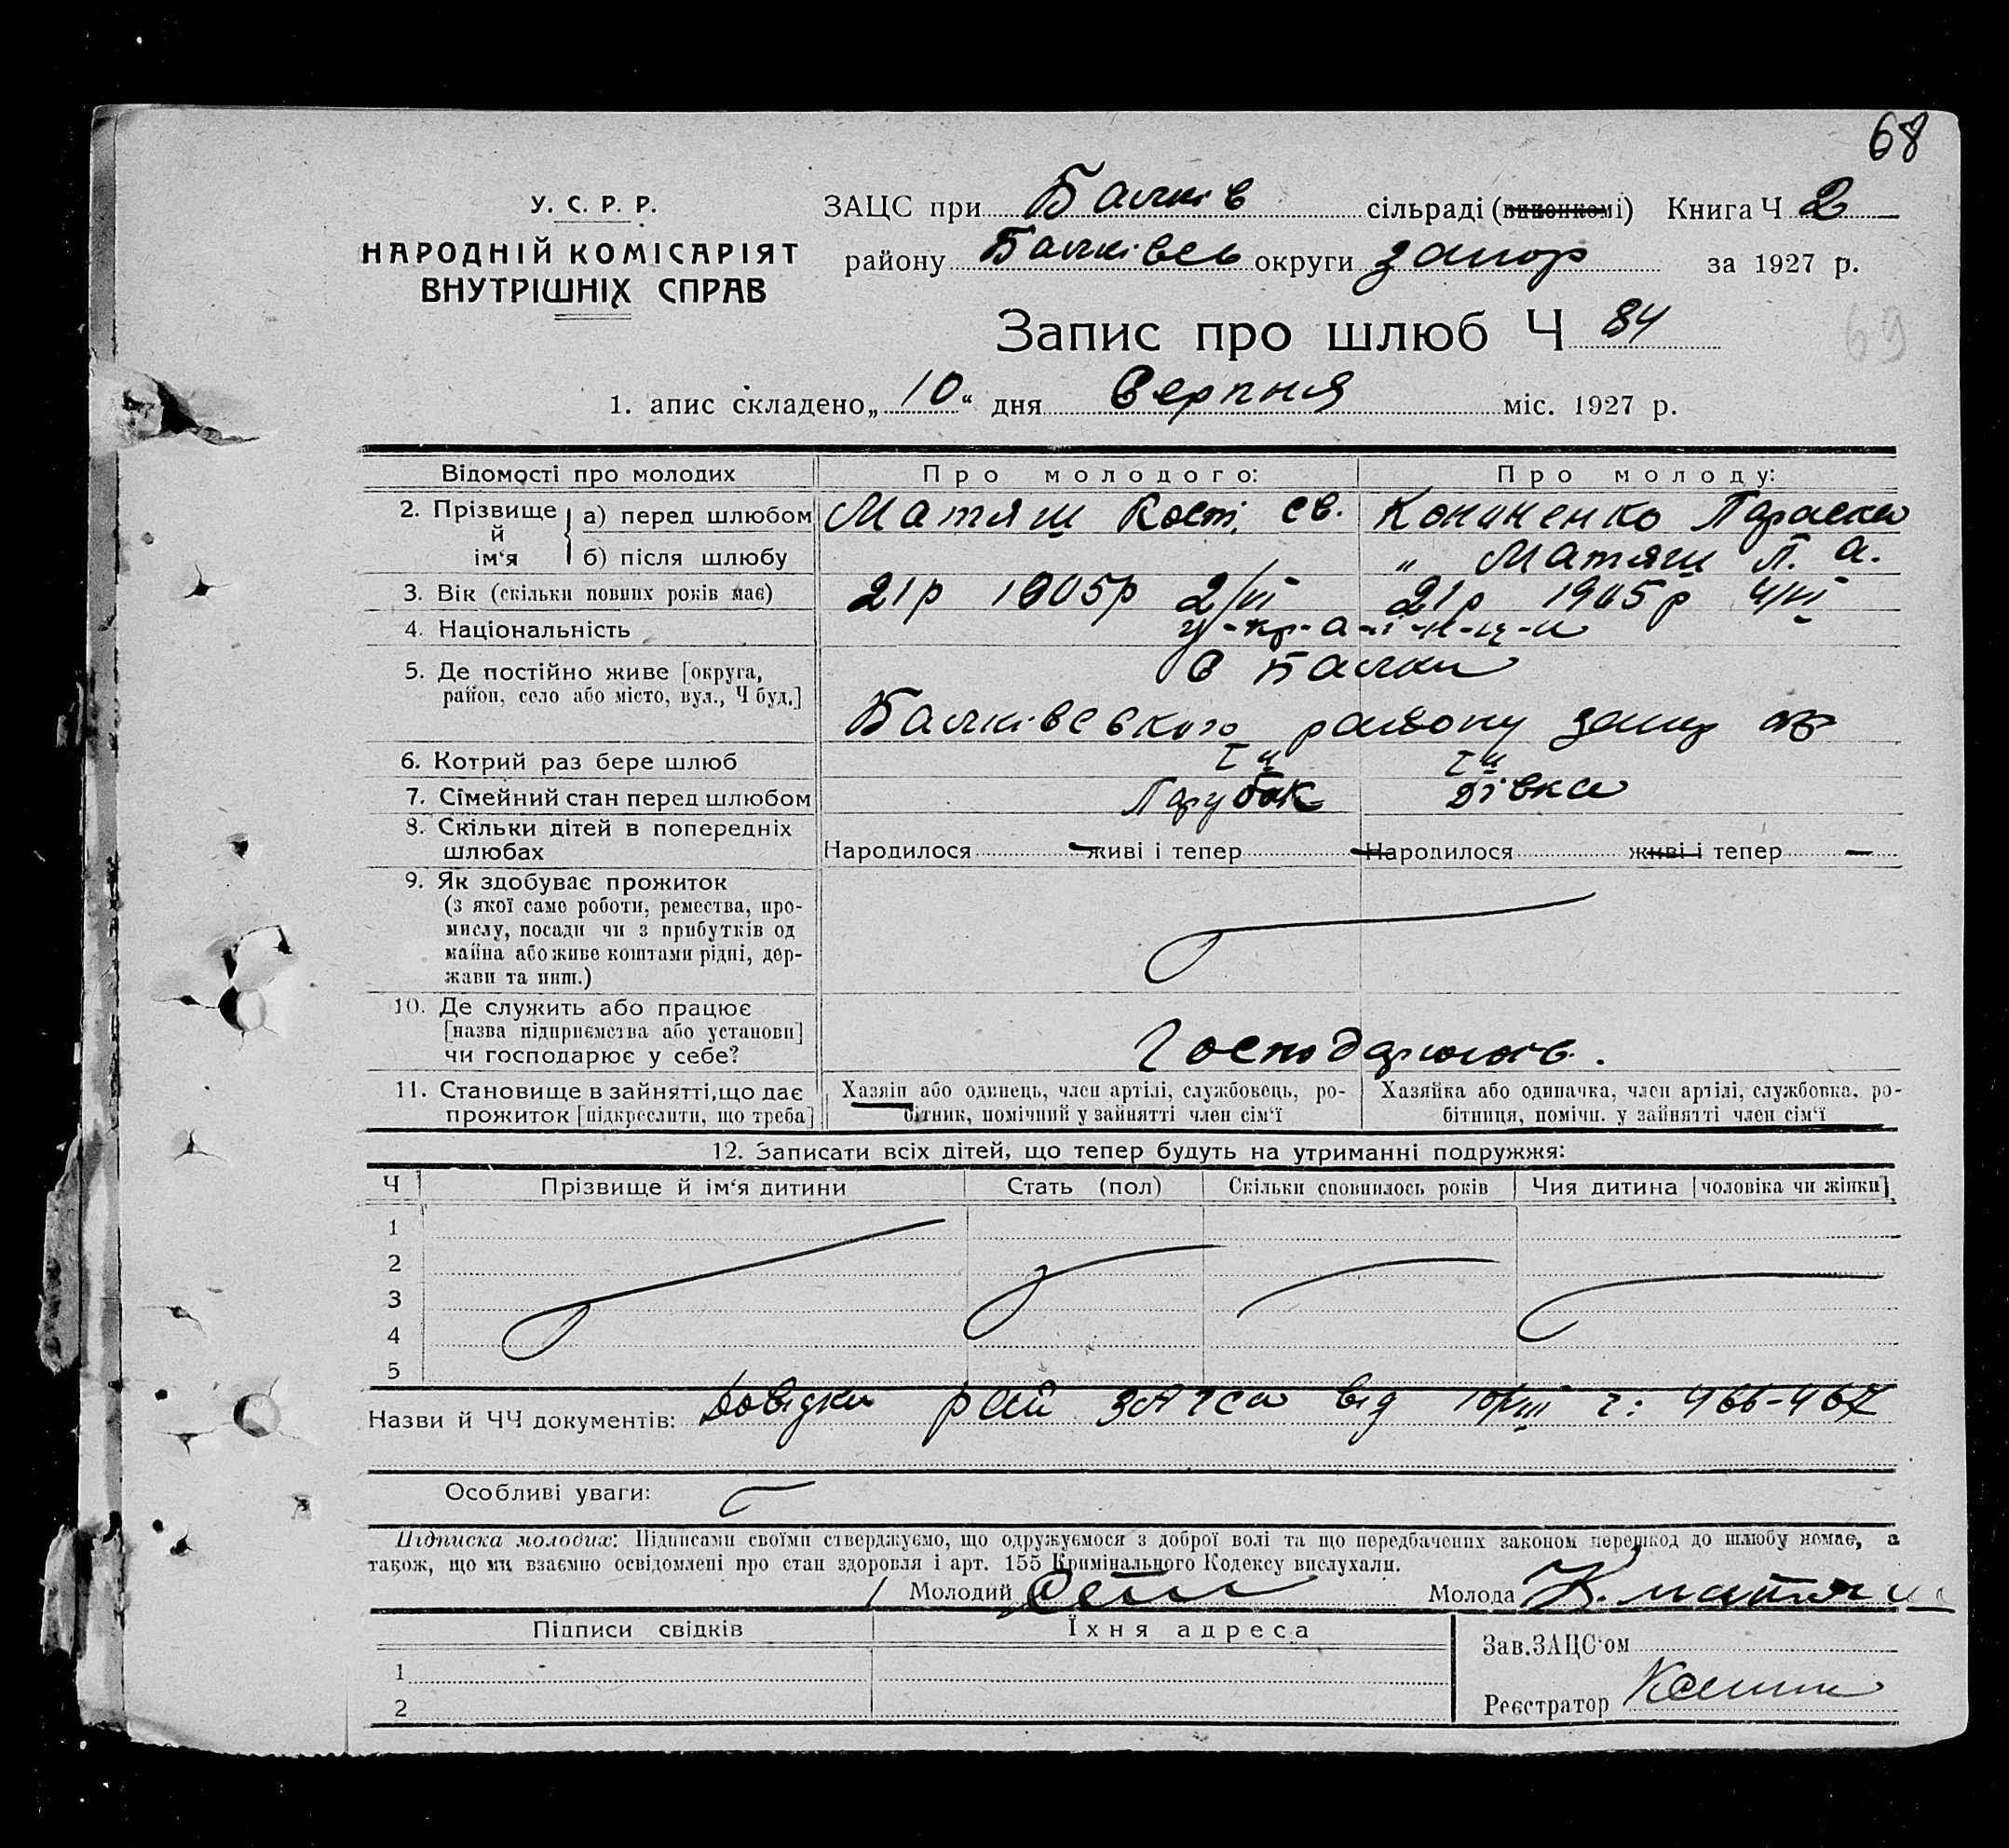 68
У. С. Р. Р.
НАРОДНІЙ КОМІСАРІЯТ
ВНУТРІШНІХ СПРАВ
ЗАЦС при Балків сільраді (виконкомі) Книга Ч 2
району Балківсь округи Запор за 1927 р.
Запис про шлюб Ч 84
69
1. апис складено „10“ дня Серпня міс. 1927 р.
Відомості про молодих Про молодого: Про молоду:
2. Прізвище й ім‘я а) перед шлюбом Матяш Кост. Св. Кононенко Параска
б) після шлюбу " Матяш П. А.
3. Вік (скільки повних років має) 21р 1905р 2/VI 21р 1905р 4/VI
4. Національність у-кр-а-ї-н-ц-и
5. Де постійно живе [округа, В Балки
район, село або місто, вул., Ч буд.]
Балківського району Запор окр
6. Котрий раз бере шлюб І й І й
7. Сімейний стан перед шлюбом Парубок Дівка
8. Скільки дітей в попередніх
шлюбах Народилося — живі і тепер — Народилося живі і тепер —
9. Як здобуває прожиток
(з якої саме роботи, ремества, про-
мислу, посади чи з прибутків од
майна або живе коштами рідні, дер-
жави та инш.)
10. Де служить або працює
[назва підприємства або установи]
чи господарює у себе? Господарюють.
11. Становище в зайнятті, що дає Хазяін або одинець, член артілі, службовець, ро- Хазяйка або одиначка, член артілі, службовка, ро-
прожиток [підкреслити, що треба] бітник, помічний у зайнятті член сім‘ї бітниця, помічн. у зайнятті член сім‘ї
12. Записати всіх дітей, що тепер будуть на утриманні подружжя:
Ч Прізвище й ім‘я дитини Стать (пол) Скільки сповнилось років Чия дитина [чоловіка чи жінки]
1
2
3
4
5
Назви й ЧЧ документів: Довідки рай ЗАГСа від 10/VIII ч: 466-467
Особливі уваги: —
Підписка молодих: Підписами своїми стверджуємо, що одружуємося з доброї волі та що передбачених законом перешкод до шлюбу немає, а
також, що ми взаємно освідомлені про стан здоровля і арт. 155 Кримінального Кодексу вислухали.
Молодий Молода К. Матяш
Підписи свідків Їхня адреса
Зав.ЗАЦС‘ом
1
Реєстратор
2